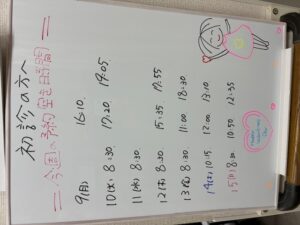 初診の方へ
今週の予約空き時間
9(月) 16:10
10(火) 8:30 17:20 19:05
11(水) 8:30
12(木) 8:30 15:35 17:55
13(金) 8:30 11:00 18:30
14(土) 10:15 12:00 13:10
15(日) 8:30 10:50 12:35